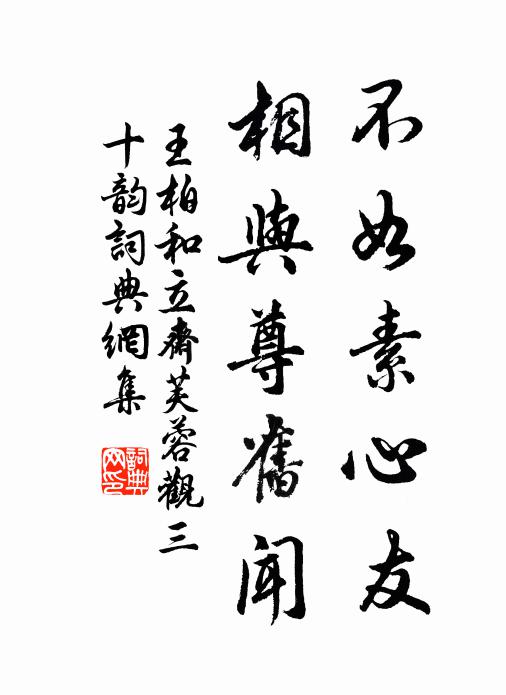 不如素心友
相與尊舊聞
王柏和立齋芙蓉觀三
十韵詞典網集
詞典网印